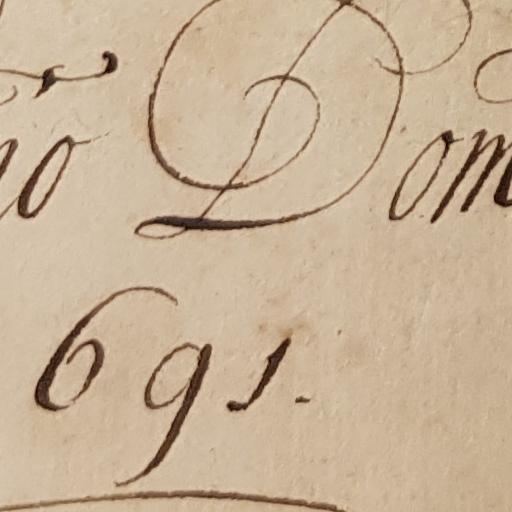 ño Dom
691.